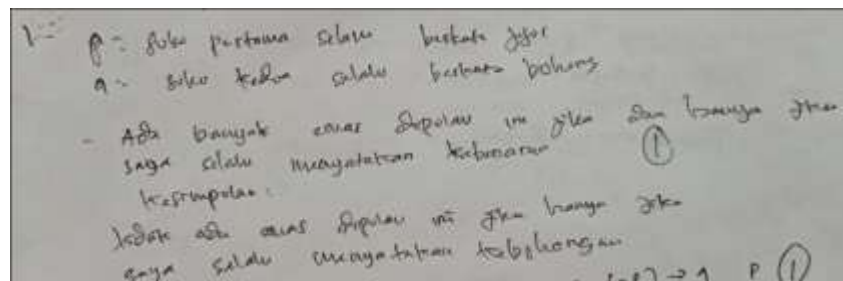 1.- p = suku pertama selalu berkata jujur
q = suku kedua selalu berkata bohong
- Ada banyak emas dipulau ini jika dan hanya jika
saya selalu menyatakan kebenaran ①
kesimpulan :
tidak ada emas dipulau ini jika hanya jika
saya selalu menyatakan kebohongan
→ q p ①